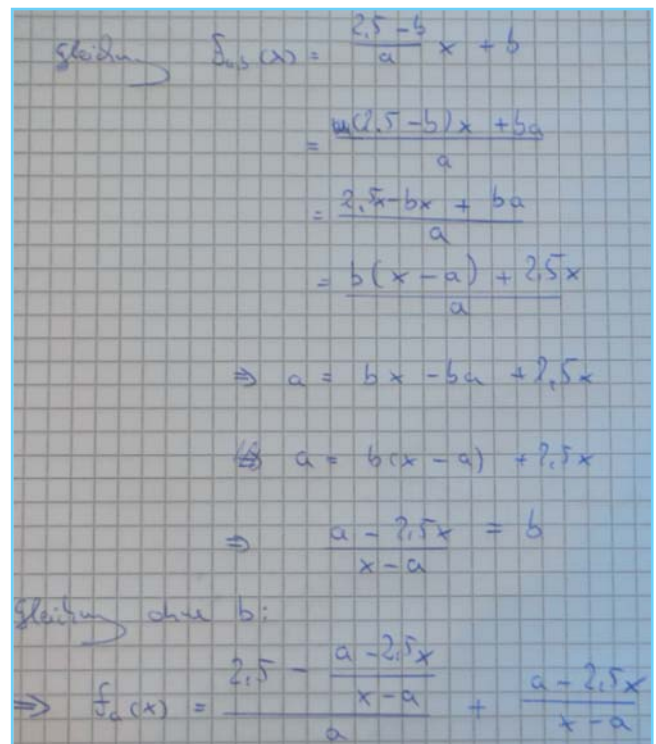 Gleichung f_{a,b}(x) = \frac{2,5 - b}{a} x + b
= \frac{(2,5 - b)x + ba}{a}
= \frac{2,5x - bx + ba}{a}
= \frac{b(x - a) + 2,5x}{a}
⇒ a = bx - ba + 2,5x
⇔ a = b(x - a) + 2,5x
⇒ \frac{a - 2,5x}{x - a} = b
Gleichung ohne b:
⇒ f_a(x) = \frac{2,5 - \frac{a - 2,5x}{x - a}}{a} + \frac{a - 2,5x}{x - a}